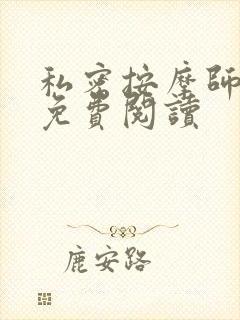 私密按摩師
免費閱讀
鹿安路